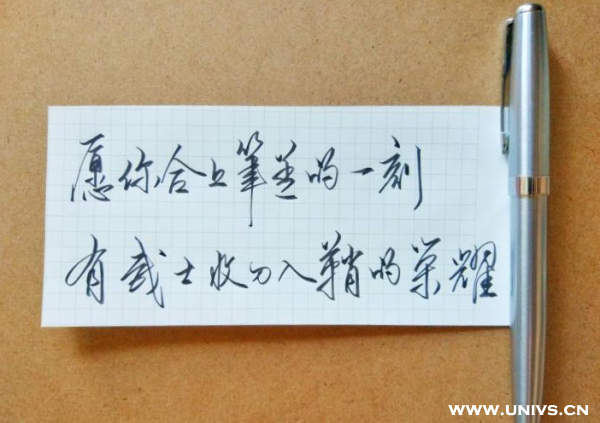 愿你合上筆盖的一刻
有武士收刀入鞘的荣耀
WWW.UNIVS.CN